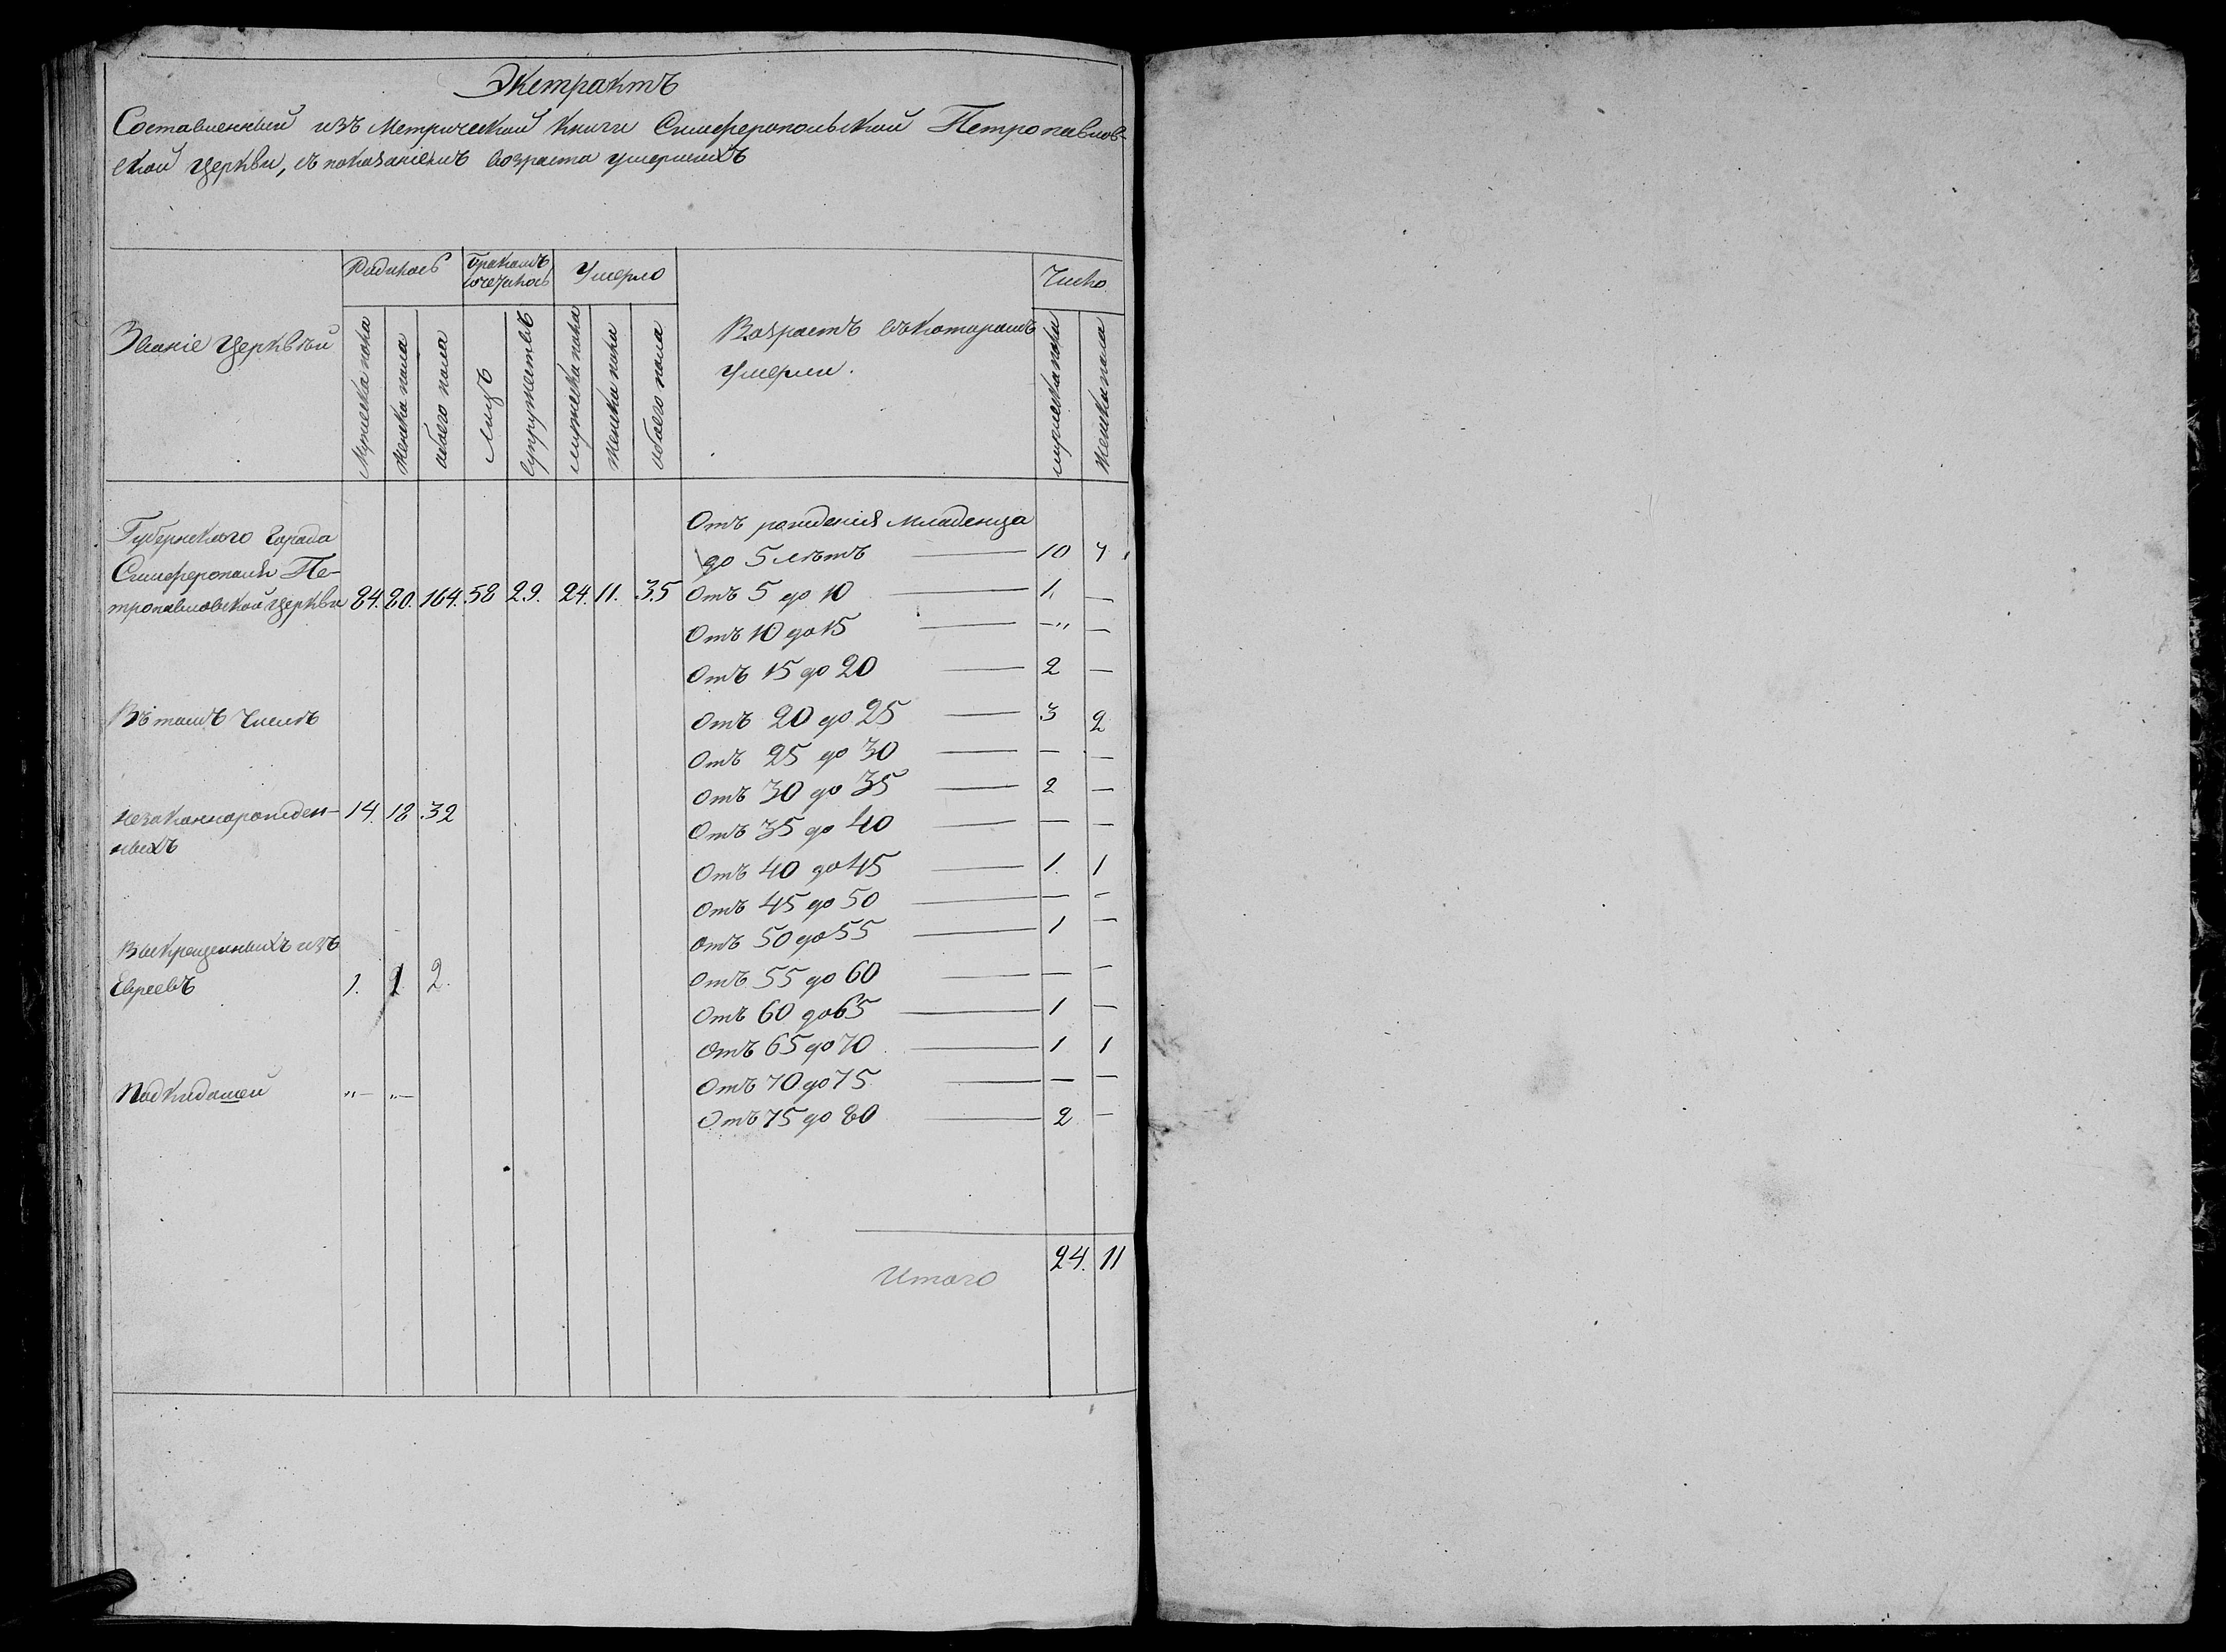 Экстрактъ
Составленный изъ Метрической книги Симферопольской Петропавлов-
ской церкви, съ показаніемъ возраста умершихъ
Званіе Церквей
Родилось
бракомъ
сочеталось
Умерло
Возрастъ въ которомъ
Умерли.
Число
Мужеска пола
Женска пола
обоего пола
Лицъ
Супружествъ
мужеска пола
Женска пола
обоего пола
мужеска пола
Женска пола
Губернского Города
Симферополя Пе-
тропавловской Церкви 84. 80. 164. 58 29. 24. 11. 35
Въ томъ Числѣ
незаконнорожден- 14. 18. 32
ныхъ
Выкрещенныхъ изъ
Евреевъ 1. 1 2.
Подкидышей "— "—
Отъ рожденія младенца
до 5 лѣтъ — 10 7
Отъ 5 до 10 — 1. —
Отъ 10 до 15 — —" —
Отъ 15 до 20 — 2 —
Отъ 20 до 25 — 3 2
Отъ 25 до 30 — — —
Отъ 30 до 35 — 2 —
Отъ 35 до 40 — — —
Отъ 40 до 45 — 1. 1
Отъ 45 до 50 — — —
Отъ 50 до 55 — 1 —
Отъ 55 до 60 — — —
Отъ 60 до 65 — 1 —
Отъ 65 до 70 — 1 1
Отъ 70 до 75 — — —
Отъ 75 до 80 — 2 —
Итого 24. 11